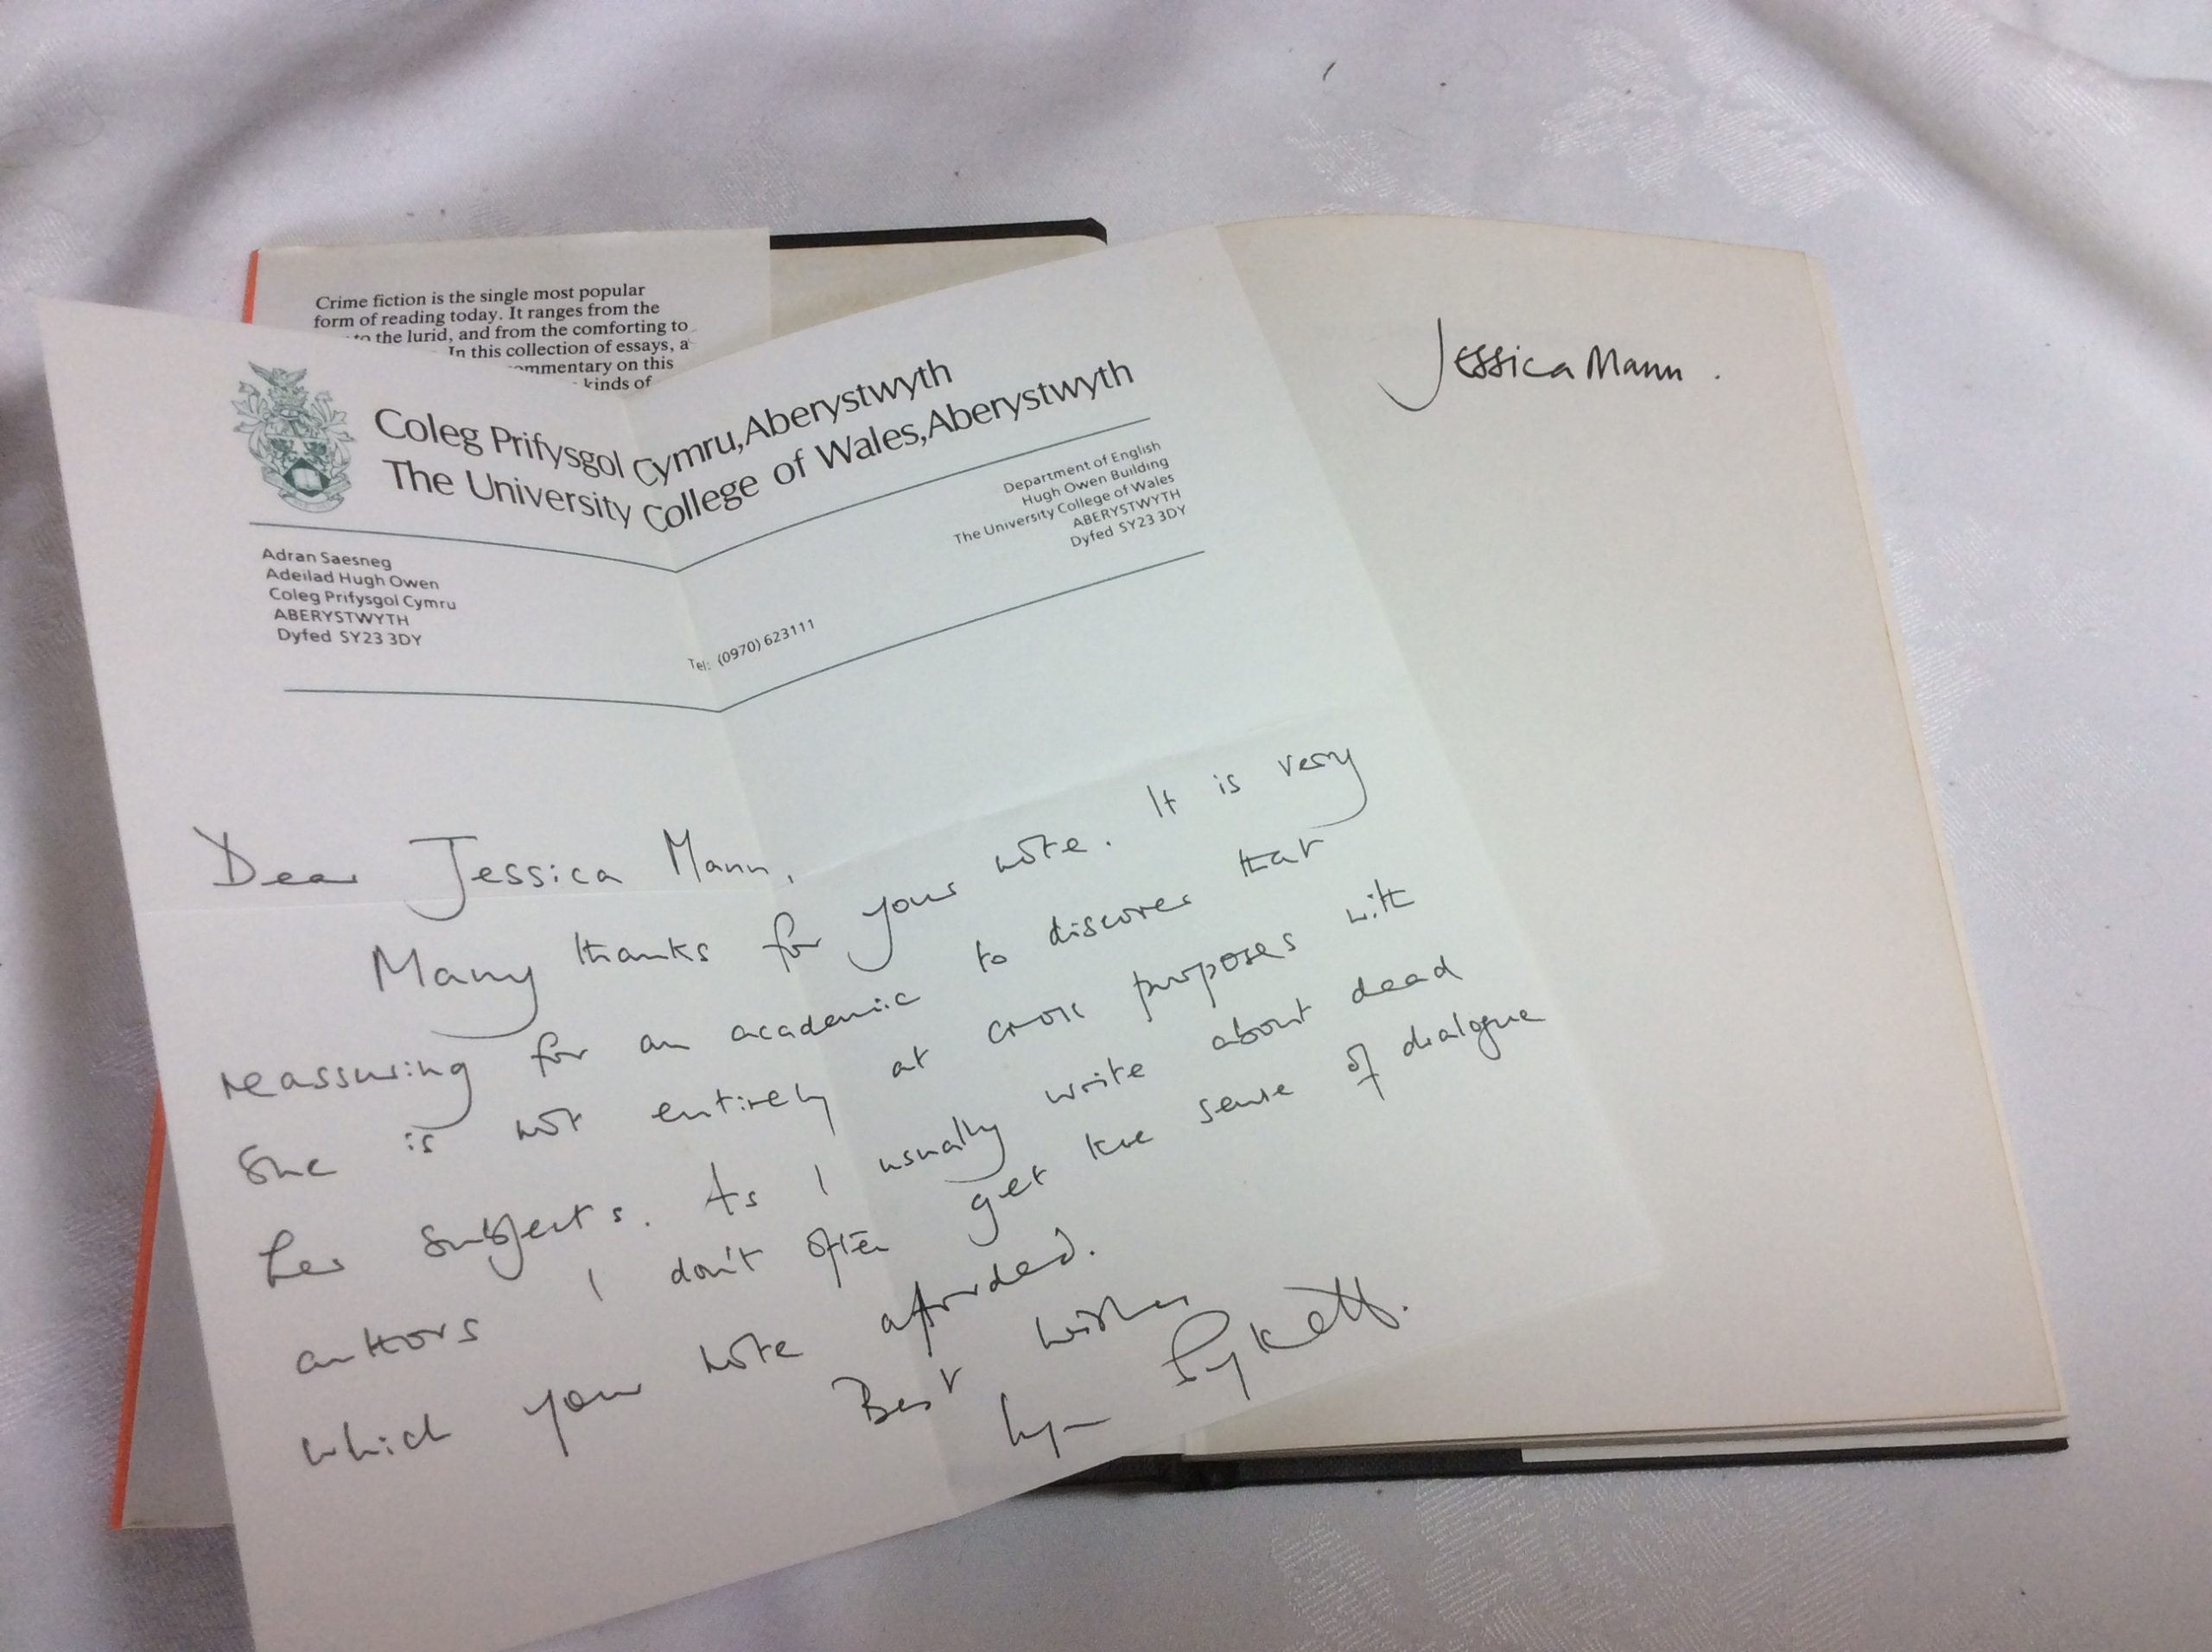 Crime fiction is the single most popular
form of reading today. It ranges from the
to the lurid, and from the comforting to
In this collection of essays, a
ommentary on this
kinds of
Coleg Prifysgol Cymru, Aberystwyth
The University College of Wales, Aberystwyth
Department of English
Hugh Owen Building
The University College of Wales
ABERYSTWYTH
Dyfed SY23 3DY
Adran Saesneg
Adeilad Hugh Owen
Coleg Prifysgol Cymru
ABERYSTWYTH
Dyfed SY23 3DY
Tel: (0970) 623111
Dear Jessica Mann,
Many thanks for your note. It is very
reassuring for an academic to discover that
she is not entirely at cross purposes with
her subjects. As I usually write about dead
authors I don't often get the sense of dialogue
which your note afforded.
Best wishes
Lyn Pykett.
Jessica Mann.